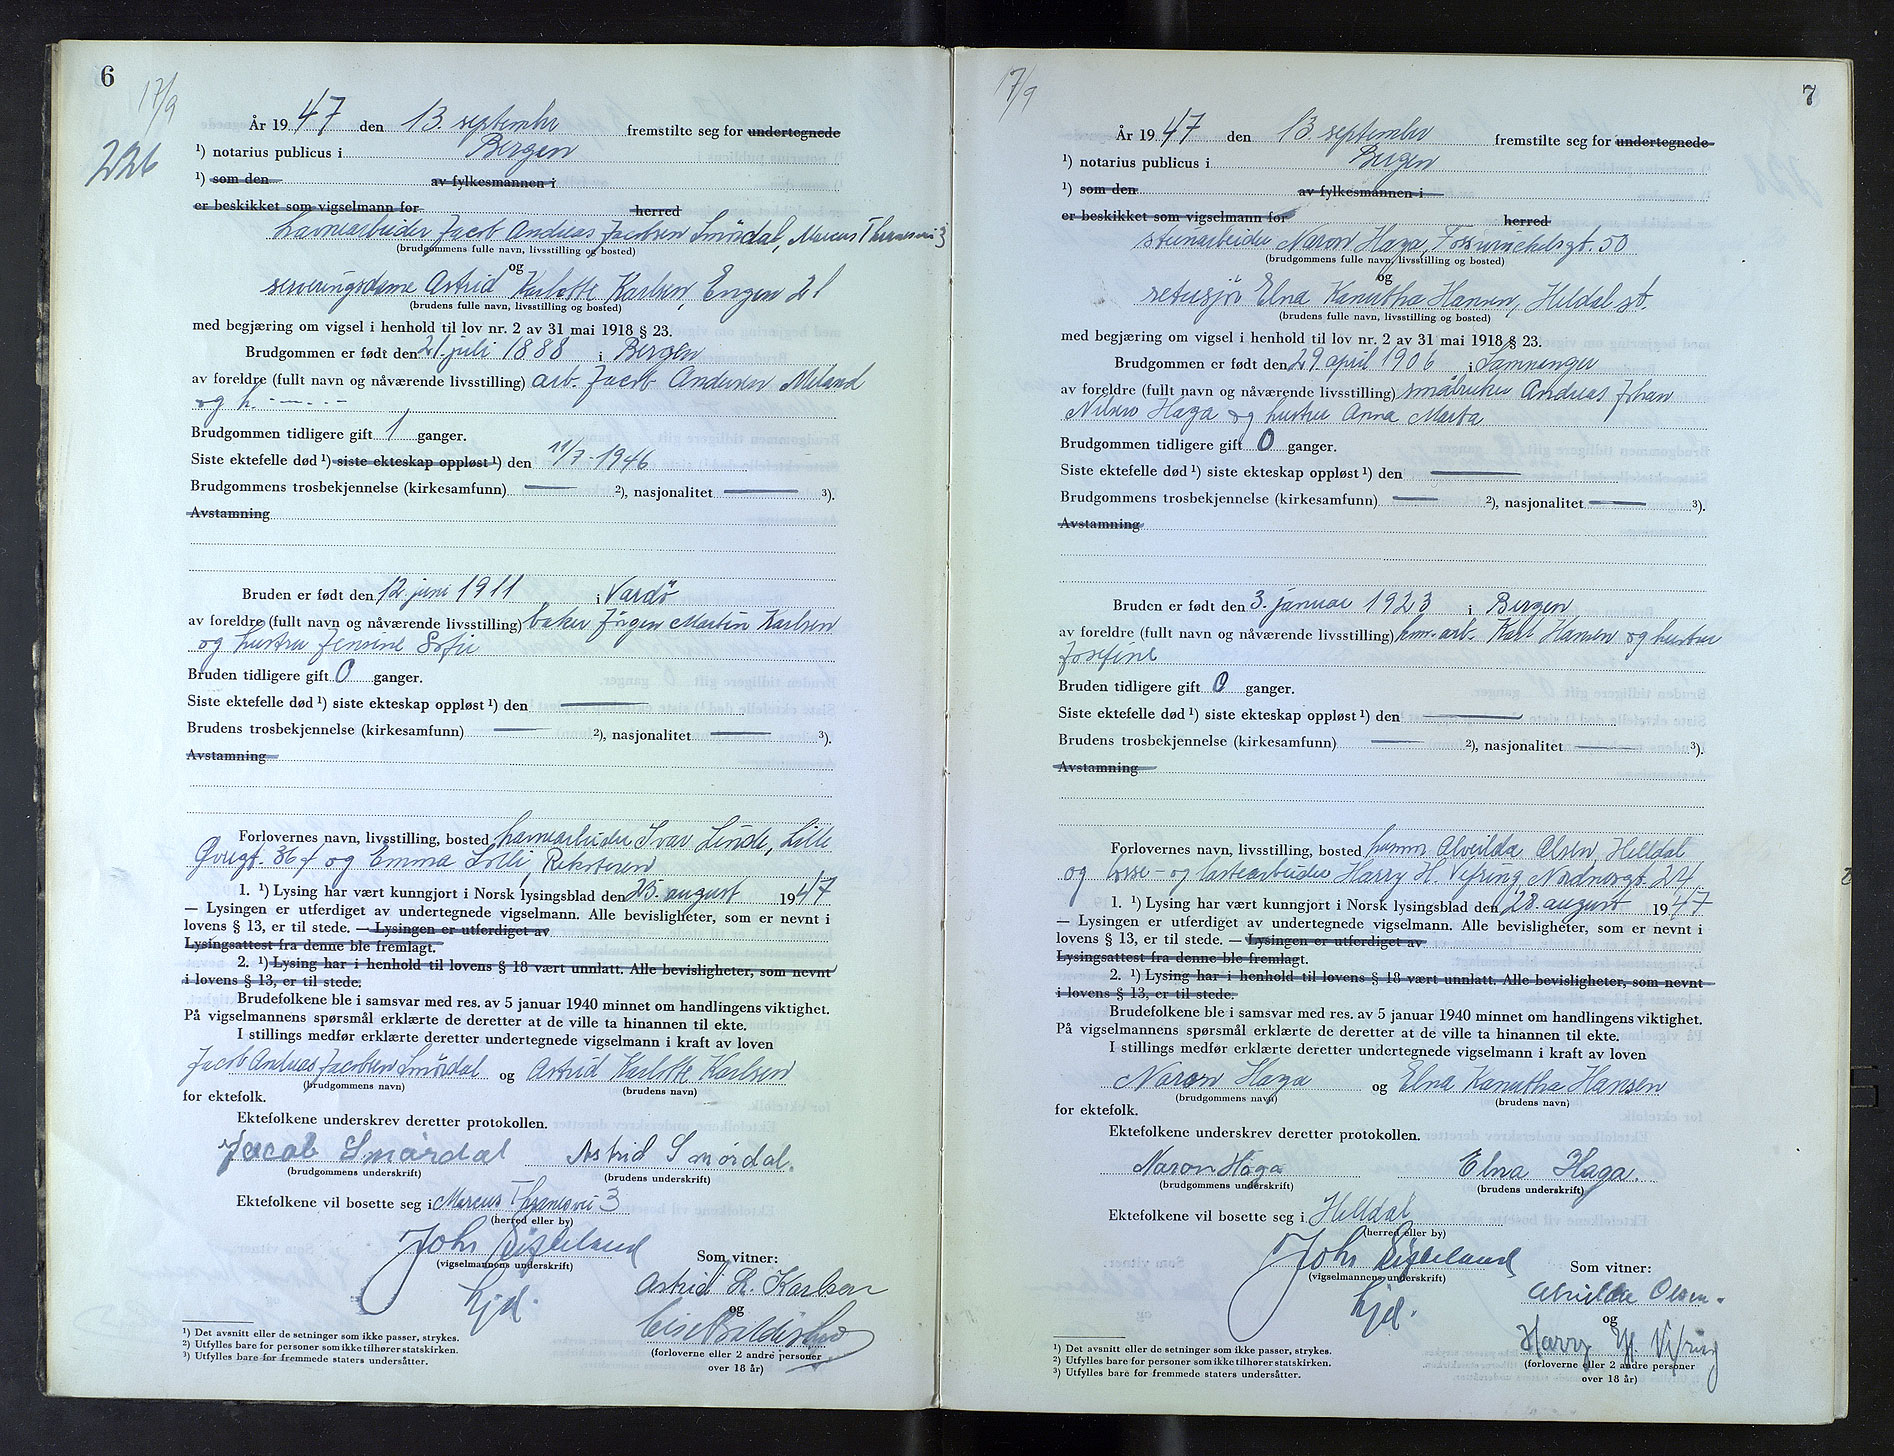 6
17/9
226
År 1947 den 13. septembr fremstilte seg for undertegnede
¹) notarius publicus i Bergen
¹) som den av fylkesmannen i
er beskikket som vigselmann for herred
havnearbeider Jacob Andreas Jacobsen Smördal, Marcus Thranesvei 3
(brudgommens fulle navn, livsstilling og bosted)
og
serveringsdame Astrid Karlotte Karlsen, Engen 21
(brudens fulle navn, livsstilling og bosted)
med begjæring om vigsel i henhold til lov nr. 2 av 31 mai 1918 § 23.
Brudgommen er født den 21. juli 1888 i Bergen
av foreldre (fullt navn og nåværende livsstilling) arb. Jacob Andersen Meland
og h. — — . . —
Brudgommen tidligere gift 1 ganger.
Siste ektefelle død ¹) siste ekteskap oppløst ¹) den 11/7-1946
Brudgommens trosbekjennelse (kirkesamfunn) — ²), nasjonalitet — ³).
Avstamning
Bruden er født den 12. juni 1911 i Vardö
av foreldre (fullt navn og nåværende livsstilling) baker Jörgen Martin Karlsen
og hustru Jensine Sofie
Bruden tidligere gift 0 ganger.
Siste ektefelle død ¹) siste ekteskap oppløst ¹) den —
Brudens trosbekjennelse (kirkesamfunn) — ²), nasjonalitet — ³).
Avstamning
Forlovernes navn, livsstilling, bosted havnearbeider Ivar Linde, Lille
Øvregt. 36 og Emma Lolle, Reksteren
1. ¹) Lysing har vært kunngjort i Norsk lysingsblad den 25. august 1947
— Lysingen er utferdiget av undertegnede vigselmann. Alle bevisligheter, som er nevnt i
lovens § 13, er til stede. — Lysingen er utferdiget av
Lysingsattest fra denne ble fremlagt.
2. ¹) Lysing har i henhold til lovens § 18 vært unnlatt. Alle bevisligheter, som nevnt
i lovens § 13, er til stede.
Brudefolkene ble i samsvar med res. av 5 januar 1940 minnet om handlingens viktighet.
På vigselmannens spørsmål erklærte de deretter at de ville ta hinannen til ekte.
I stillings medfør erklærte deretter undertegnede vigselmann i kraft av loven
Jacob Andreas Jacobsen Smördal og Astrid Karlotte Karlsen
(brudgommens navn) (brudens navn)
for ektefolk.
Ektefolkene underskrev deretter protokollen.
Jacob Smördal Astrid Smördal.
(brudgommens underskrift) (brudens underskrift)
Ektefolkene vil bosette seg i Marcus Thranesvei 3
(herred eller by)
Som vitner:
(vigselmannens underskrift)
Astrid K. Karlsen
og
(forloverne eller 2 andre personer
over 18 år)
¹) Det avsnitt eller de setninger som ikke passer, strykes.
²) Utfylles bare for personer som ikke tilhører statskirken.
³) Utfylles bare for fremmede staters undersåtter.
7
17/9
År 1947 den 13. septembr fremstilte seg for undertegnede
¹) notarius publicus i Bergen
¹) som den av fylkesmannen i
er beskikket som vigselmann for herred
stenarbeider Naron Haga, Torsvichelsgt. 50
(brudgommens fulle navn, livsstilling og bosted)
og
retusjör Elna Kanutha Hansen, Heldal st.
(brudens fulle navn, livsstilling og bosted)
med begjæring om vigsel i henhold til lov nr. 2 av 31 mai 1918 § 23.
Brudgommen er født den 29. april 1906 i Samnanger
av foreldre (fullt navn og nåværende livsstilling) småbruker Andreas Johan
Nilsen Haga og hustru Anna Marta
Brudgommen tidligere gift 0 ganger.
Siste ektefelle død ¹) siste ekteskap oppløst ¹) den —
Brudgommens trosbekjennelse (kirkesamfunn) — ²), nasjonalitet — ³).
Avstamning
Bruden er født den 3. januar 1923 i Bergen
av foreldre (fullt navn og nåværende livsstilling) kom. arb. Karl Hansen og hustru
Josefine
Bruden tidligere gift 0 ganger.
Siste ektefelle død ¹) siste ekteskap oppløst ¹) den —
Brudens trosbekjennelse (kirkesamfunn) — ²), nasjonalitet — ³).
Avstamning
Forlovernes navn, livsstilling, bosted Alvilda Olsen, Helldal
og losse- og lastearbeider Harry H. Vifring, Nordnesgt. 24
1. ¹) Lysing har vært kunngjort i Norsk lysingsblad den 28. august 1947
— Lysingen er utferdiget av undertegnede vigselmann. Alle bevisligheter, som er nevnt i
lovens § 13, er til stede. — Lysingen er utferdiget av
Lysingsattest fra denne ble fremlagt.
2. ¹) Lysing har i henhold til lovens § 18 vært unnlatt. Alle bevisligheter, som nevnt
i lovens § 13, er til stede.
Brudefolkene ble i samsvar med res. av 5 januar 1940 minnet om handlingens viktighet.
På vigselmannens spørsmål erklærte de deretter at de ville ta hinannen til ekte.
I stillings medfør erklærte deretter undertegnede vigselmann i kraft av loven
Naron Haga og Elna Kanutha Hansen
(brudgommens navn) (brudens navn)
for ektefolk.
Ektefolkene underskrev deretter protokollen.
Naron Haga Elna Haga.
(brudgommens underskrift) (brudens underskrift)
Ektefolkene vil bosette seg i Helldal
(herred eller by)
Som vitner:
(vigselmannens underskrift)
Alvilda Olsen.
og
Harry H. Vifring
(forloverne eller 2 andre personer
over 18 år)
¹) Det avsnitt eller de setninger som ikke passer, strykes.
²) Utfylles bare for personer som ikke tilhører statskirken.
³) Utfylles bare for fremmede staters undersåtter.